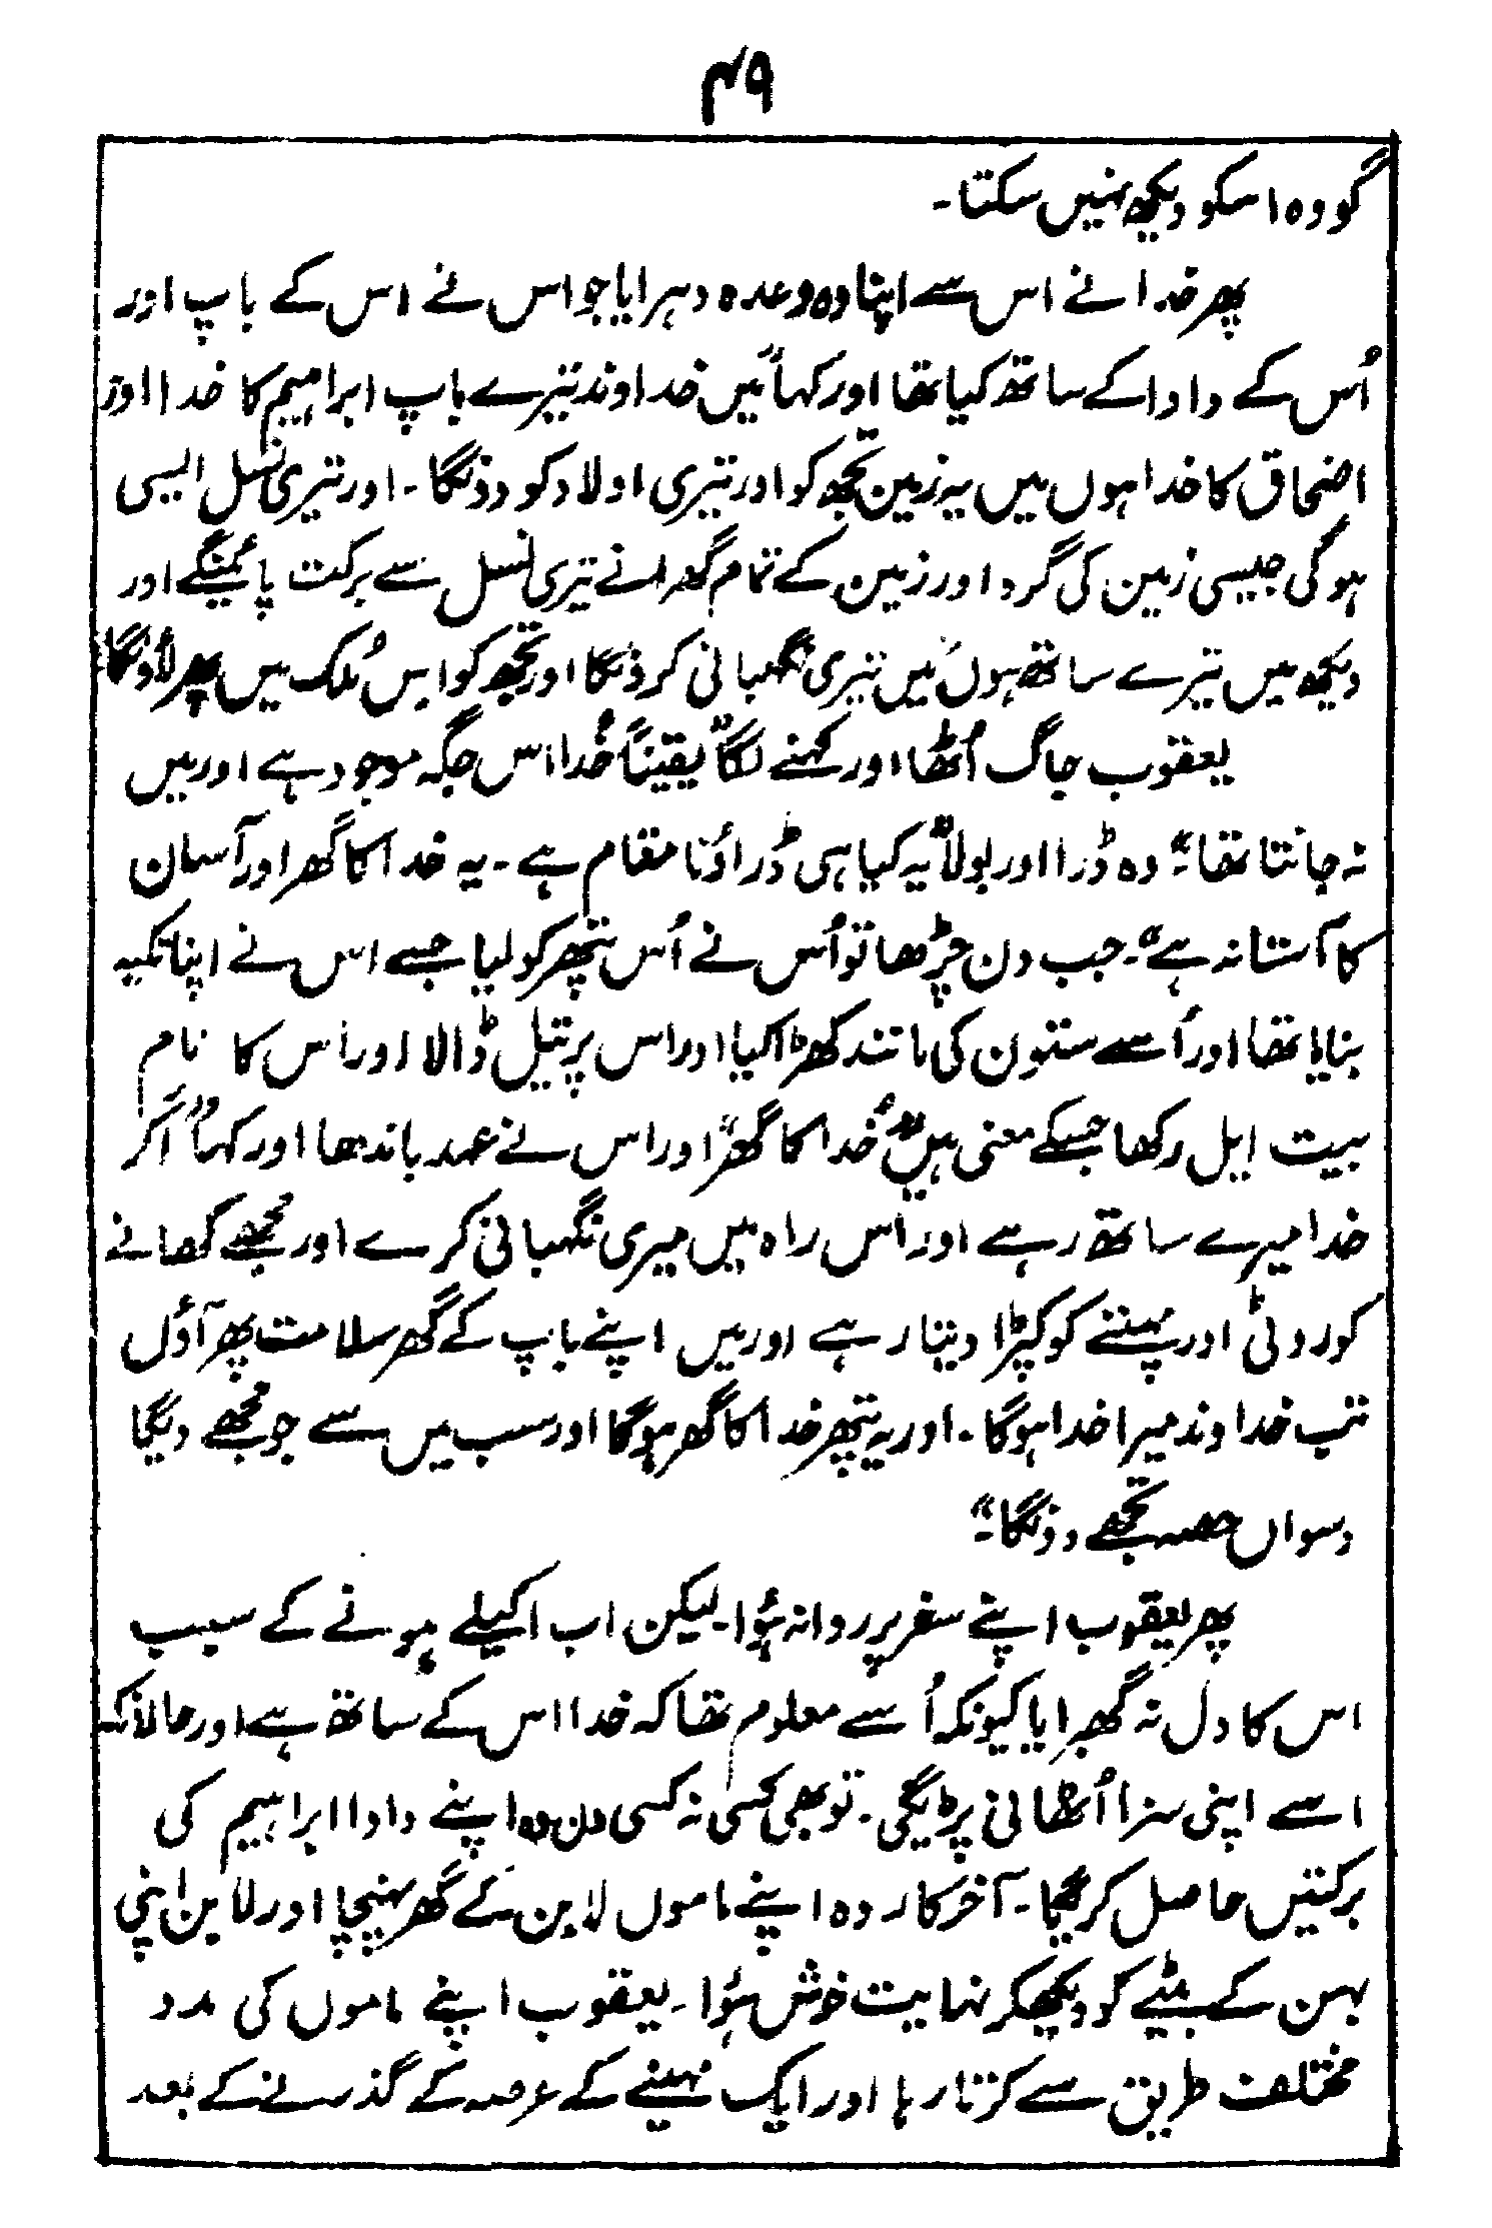 ۴۹
گو وہ اسکو دیکھ نہیں سکتا۔
پھر خدا نے اس سے اپنا وہ وعدہ دہرایا جو اس نے اس کے باپ اور
اُس کے دادا کے ساتھ کیا تھا اور کہا ”میں خداوند تیرے باپ ابراہیم کا خدا اور
اضحاق کا خدا ہوں میں یہ زمین تجھ کو اور تیری اولاد کو دونگا۔ اور تیری نسل ایسی
ہوگی جیسی زمین کی گرد اور زمین کے تمام گھرانے تیری نسل سے برکت پائینگے اور
دیکھ میں تیرے ساتھ ہوں میں تیری نگہبانی کرونگا اور تجھ کو اس مُلک میں پھر لاؤنگا“
یعقوب جاگ اُٹھا اور کہنے لگا ”یقیناً خُدا اس جگہ موجود ہے اور میں
نہ جانتا تھا۔“ وہ ڈرا اور بولا ”یہ کیا ہی ڈراؤنا مقام ہے۔ یہ خدا کا گھر اور آسمان
کا آستانہ ہے“۔ جب دن چڑھا تو اُس نے اُس پتھر کو لیا جسے اس نے اپنا تکیہ
بنایا تھا اور اُسے ستون کی مانند کھڑا کیا اور اس پر تیل ڈالا اور اس کا نام
بیت ایل رکھا جسکے معنی ہیں ”خُدا کا گھر“ اور اس نے عہد باندھا اور کہا ”اگر
خدا میرے ساتھ رہے اور اس راہ میں میری نگہبانی کرے اور مجھے کھانے
کو روٹی اور پہننے کو کپڑا دیتا رہے اور میں اپنے باپ کے گھر سلامت پھر آؤں
تب خداوند میرا خدا ہوگا۔ اور یہ پتھر خدا کا گھر ہوگا اور سب میں سے جو مجھے دیگا
دسواں حصہ تجھے دونگا۔“
پھر یعقوب اپنے سفر پر روانہ ہؤا۔ لیکن اب اکیلے ہونے کے سبب
اس کا دل نہ گھبرایا کیونکہ اُسے معلوم تھا کہ خدا اس کے ساتھ ہے اور حالانکہ
اسے اپنی سزا اُٹھانی پڑیگی۔ تو بھی کسی نہ کسی دن وہ اپنے دادا ابراہیم کی
برکتیں حاصل کریگا۔ آخرکار وہ اپنے ماموں لابن کے گھر پہنچا اور لابن اپنی
بہن کے بیٹے کو دیکھکر نہایت خوش ہؤا۔ یعقوب اپنے ماموں کی مدد
مختلف طریق سے کرتا رہا اور ایک مہینے کے عرصہ کے گذرنے کے بعد